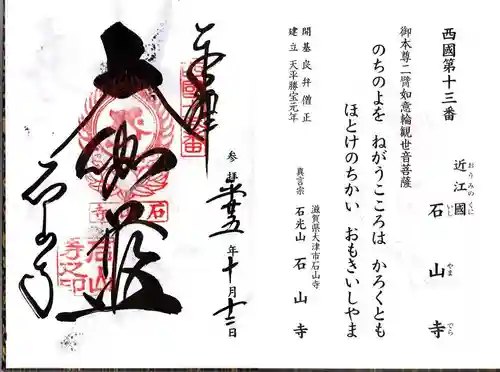 西國第十三番
近江國 石山寺
おうみのくに いしやまでら
御本尊二臂如意輪観世音菩薩
のちのよを ねがうこころは かろくとも
ほとけのちかい おもきいしやま
開基 良弁僧正
建立 天平勝宝元年
滋賀県大津市石山寺
真言宗 石光山 石山寺
参拝
年十月十二日
奉拝
大伽藍
石山寺
石山寺之印